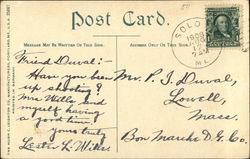 Post Card.
MESSAGE MAY BE WRITTEN ON THIS SIDE.
ADDRESS ONLY ON THIS SIDE.
SOLO
1908
ME.
Friend Duval:-
Have you been
up shooting?
Mrs Wills and
myself having
a good time.
yours truly
Lester L. Wills
Mr. P. I. Duval,
Lowell,
Mass.
Bon Marche D. G. Co.